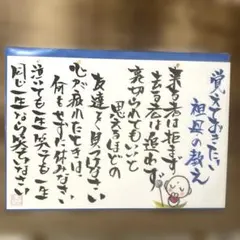 覚えておきたい
祖母の教え
来る者は拒まず
去る者は追わず
裏切られてもいいと
思えるほどの
友達を見つけなさい
心が疲れたときは、
何もせずに休みなさい
泣いても一生 笑っても一生
同じ一生なら笑いなさい